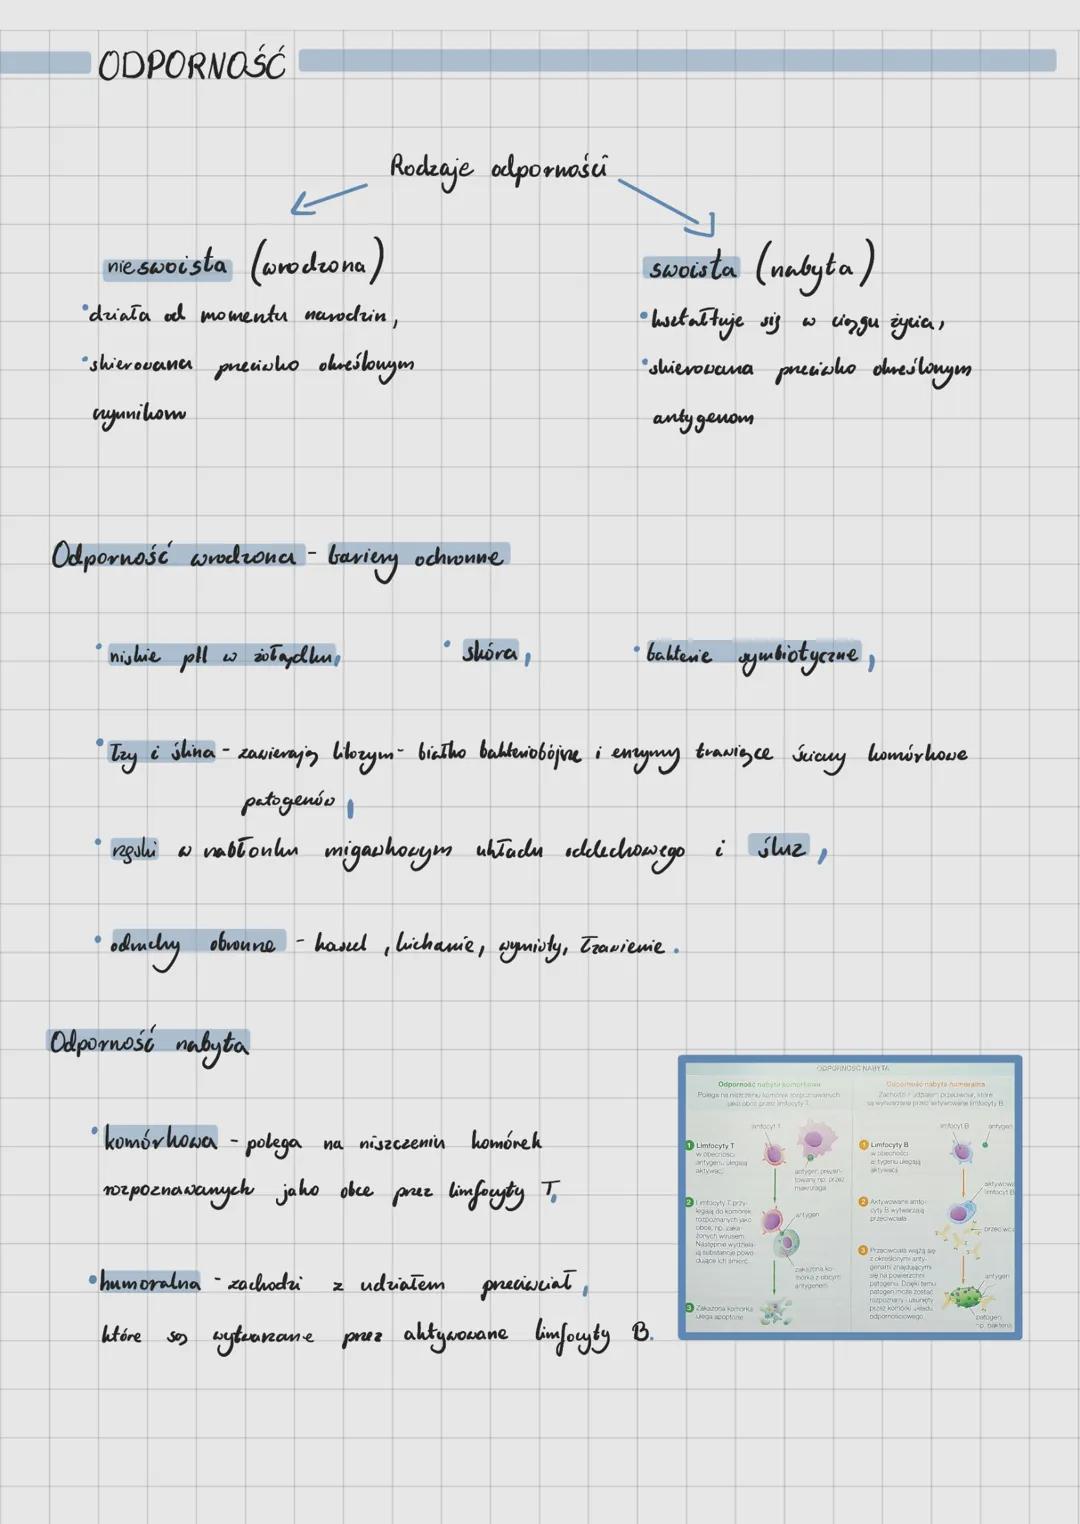 ODPORNOŚĆ
Rodzaje odporności
nieswoista (wrodzona)
swoista (nabyta)
•działa od momentu narodzin,
•kształtuje się w ciągu życia,
•skierowana przeciwko określonym
czynnikom
•skierowana przeciwko określonym
antygenom
Odporność wrodzona - bariery ochronne
•niskie pH w żołądku,
•skóra,
•bakterie symbiotyczne,
•łzy i ślina - zawierają lizozym - białko bakteriobójcze i enzymy trawiące ściany komórkowe
patogenów,
•rzęski w nabłonku migawkowym układu oddechowego i śluz,
•odruchy obronne - kaszel, kichanie, wymioty, łzawienie.
Odporność nabyta
•komórkowa - polega na niszczeniu komórek
rozpoznawanych jako obce przez limfocyty T,
•humoralna - zachodzi z udziałem przeciwciał,
które są wytwarzane przez aktywowane limfocyty B.
ODPORNOŚĆ NABYTA
Odporność nabyta komórkowa
Polega na niszczeniu komórek rozpoznawanych
jako obce przez limfocyty T.
limfocyt T
1 Limfocyty T
w obecności
antygenu ulegają
aktywacji
antygen prezen-
towany np. przez
makrofaga
2 Limfocyty T przy-
legają do komórek
rozpoznanych jako
obce, np. zaka-
żonych wirusem.
Następnie wydziela-
ją substancje powo-
dujące ich śmierć.
antygen
zakażona ko-
mórka z obcym
antygenem
3 Zakażona komórka
ulega apoptozie
Odporność nabyta humoralna
Zachodzi z udziałem przeciwciał, które
są wytwarzane przez aktywowane limfocyty B.
limfocyt B
antygen
1 Limfocyty B
w obecności
antygenu ulegają
aktywacji
limfocyt B
2 Aktywowane limfo-
cyty B wytwarzają
przeciwciała
3 Przeciwciała wiążą się
z określonymi anty-
genami znajdującymi
się na powierzchni
patogenu. Dzięki temu
patogen może zostać
rozpoznany i usunięty
przez komórki układu
odpornościowego
antygen
patogen
np. bakteria